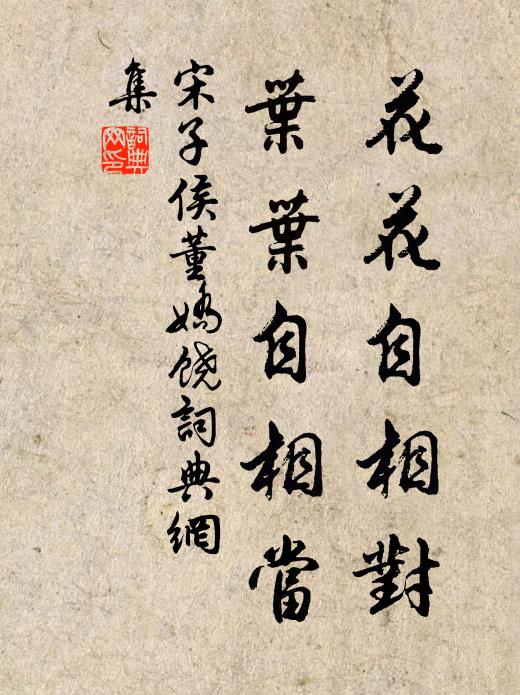 花花自相對
葉葉自相當
宋子侯董嬌饒詞典網
集
詞典
网印